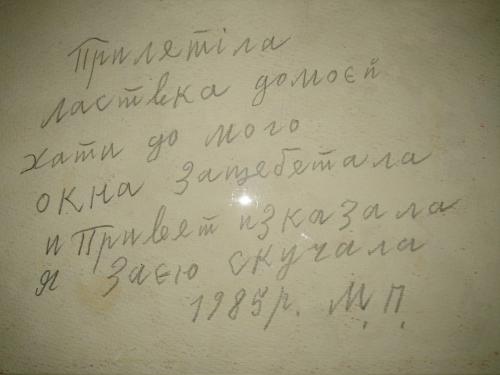 Прилетіла
ластвка домоєй
хати до мого
окна защебетала
и Привет изказала
я Заєю скучала
1985р. М.П.